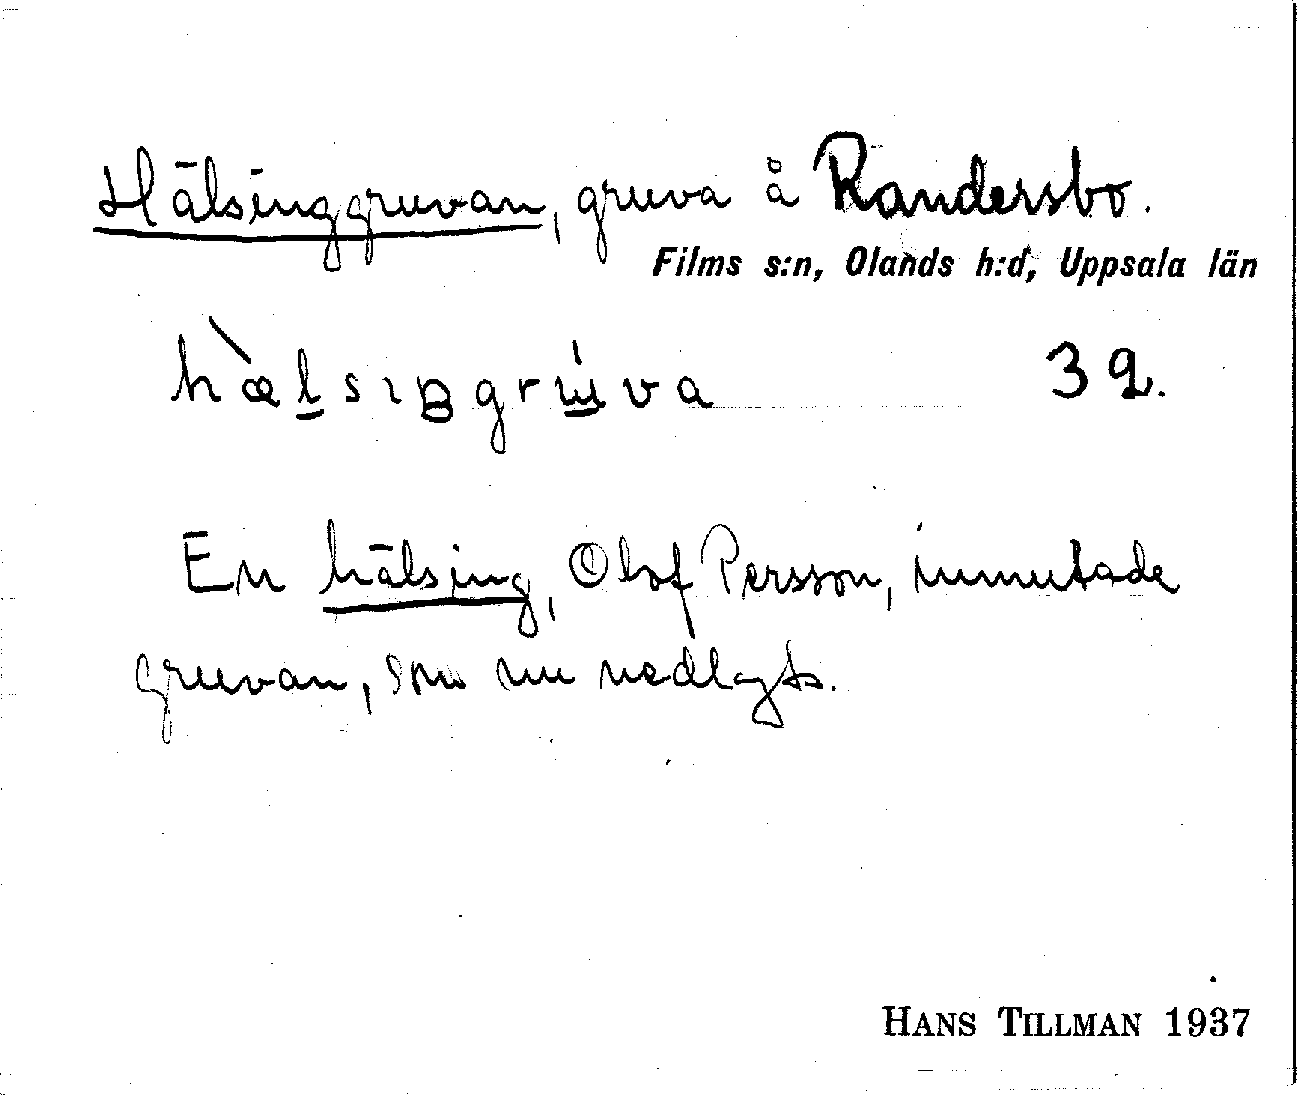 Hälsinggruvan, gruva å Randersbo.
Films s:n, Olands h:d, Uppsala län
39.
En hälsing, Olof Persson, inmutade
gruvan, som nu nedlagts.
HANS TILLMAN 1937